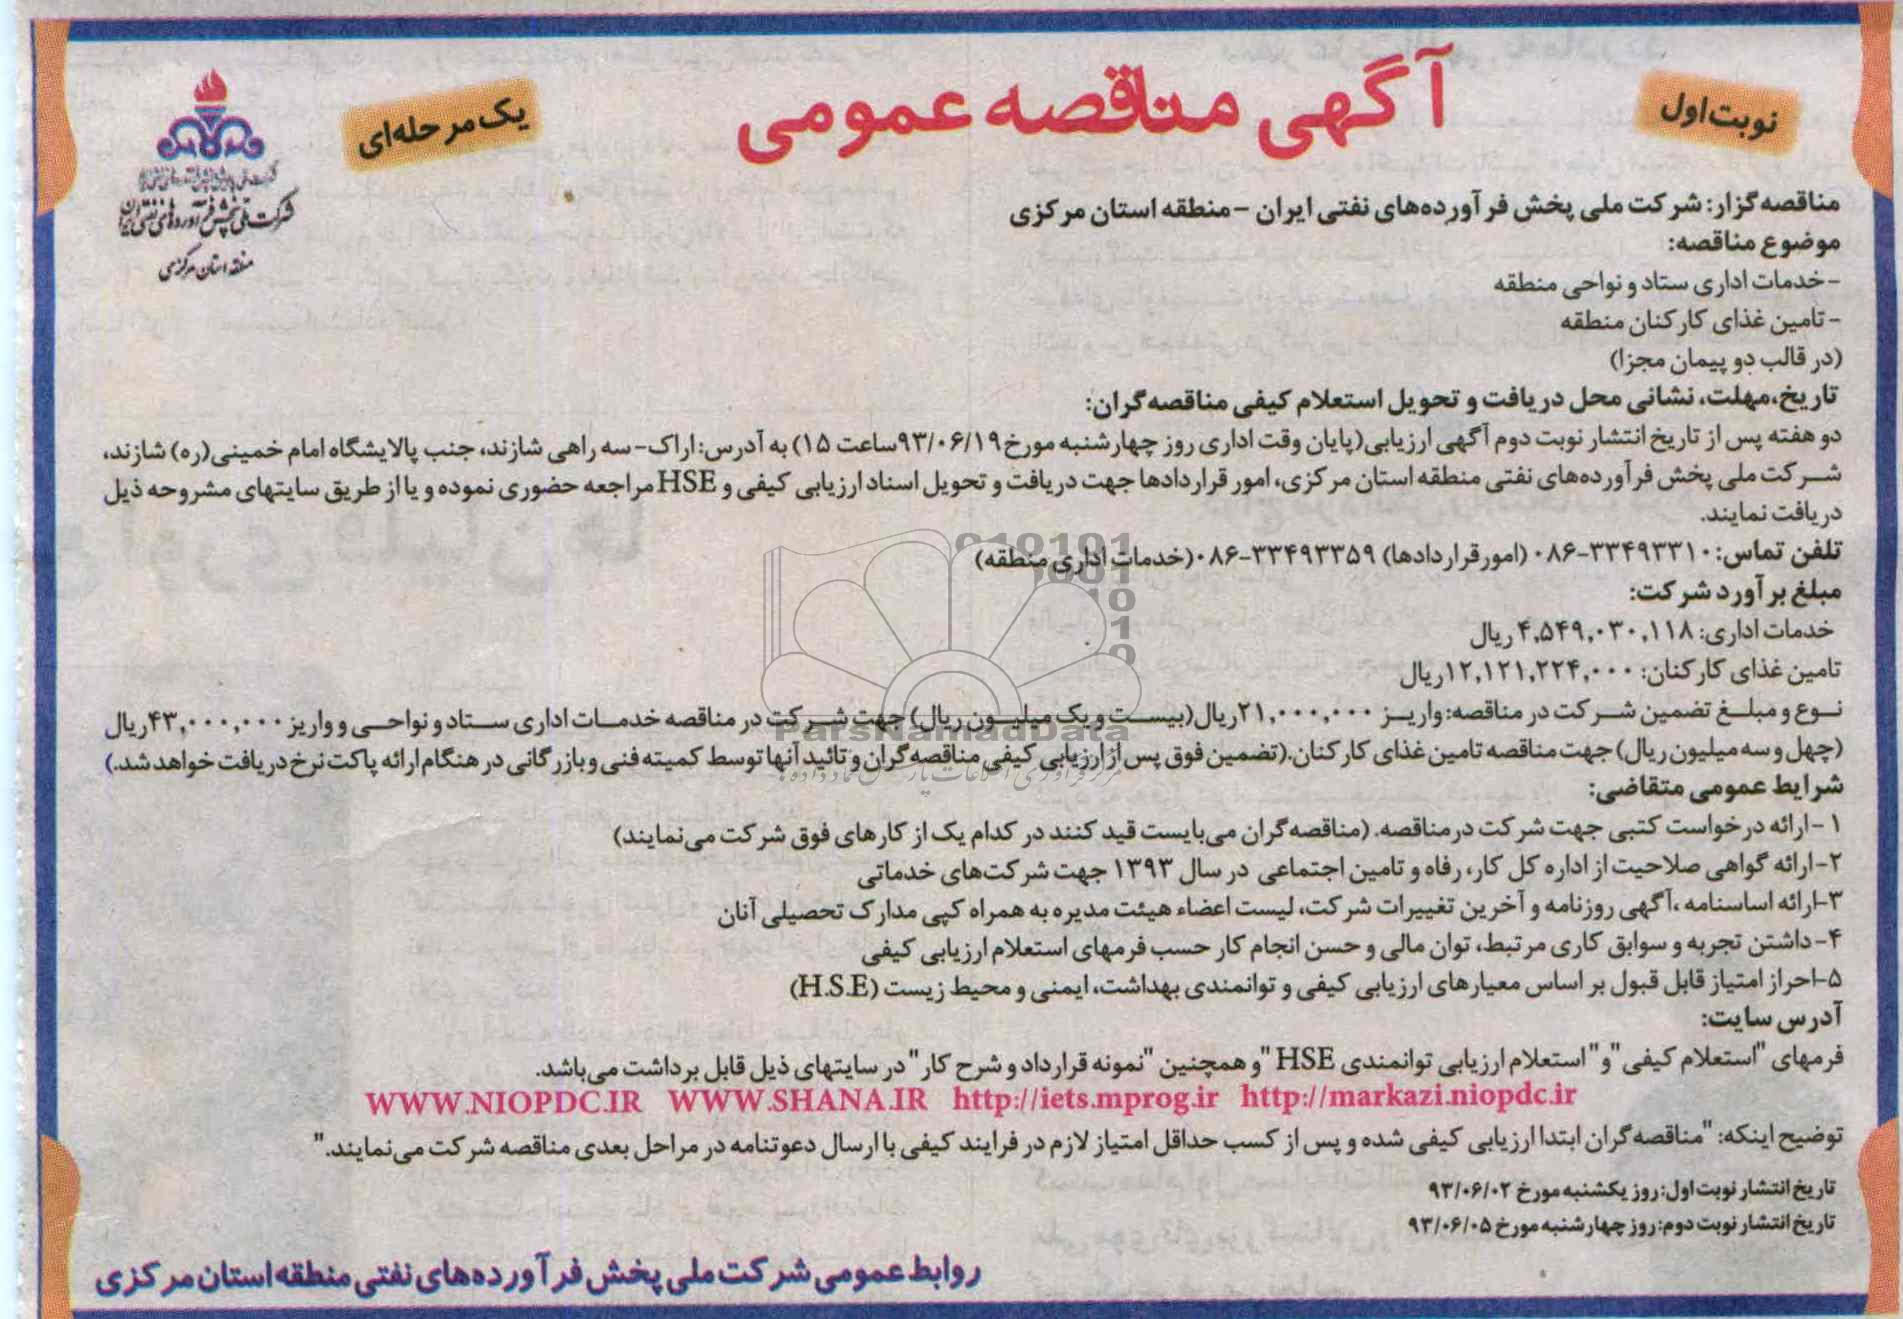 نوبت اول
آگهی مناقصه عمومی
یک مرحله‌ای
شرکت ملی پخش فرآورده‌های نفتی ایران
منطقه استان مرکزی
مناقصه‌گزار: شرکت ملی پخش فرآورده‌های نفتی ایران - منطقه استان مرکزی
موضوع مناقصه:
- خدمات اداری ستاد و نواحی منطقه
- تامین غذای کارکنان منطقه
(در قالب دو پیمان مجزا)
تاریخ، مهلت، نشانی محل دریافت و تحویل استعلام کیفی مناقصه‌گران:
دو هفته پس از تاریخ انتشار نوبت دوم آگهی ارزیابی(پایان وقت اداری روز چهارشنبه مورخ ۹۳/۰۶/۱۹ساعت ۱۵) به آدرس: اراک- سه راهی شازند، جنب پالایشگاه امام خمینی(ره) شازند،
شرکت ملی پخش فرآورده‌های نفتی منطقه استان مرکزی، امور قراردادها جهت دریافت و تحویل اسناد ارزیابی کیفی و HSE مراجعه حضوری نموده و یا از طریق سایتهای مشروحه ذیل
دریافت نمایند.
تلفن تماس: ۳۳۴۹۳۳۱۰-۰۸۶ (امور قراردادها) ۳۳۴۹۳۳۵۹-۰۸۶ (خدمات اداری منطقه)
مبلغ برآورد شرکت:
خدمات اداری: ۴,۵۴۹,۰۳۰,۱۱۸ ریال
تامین غذای کارکنان: ۱۲,۱۲۱,۲۲۴,۰۰۰ریال
نوع و مبلغ تضمین شرکت در مناقصه: واریز ۲۱,۰۰۰,۰۰۰ریال(بیست و یک میلیون ریال) جهت شرکت در مناقصه خدمات اداری ستاد و نواحی و واریز ۴۳,۰۰۰,۰۰۰ریال
(چهل و سه میلیون ریال) جهت مناقصه تامین غذای کارکنان.(تضمین فوق پس از ارزیابی کیفی مناقصه‌گران و تائید آنها توسط کمیته فنی و بازرگانی در هنگام ارائه پاکت نرخ دریافت خواهد شد.)
ParsNamadData
شرایط عمومی متقاضی:
۱- ارائه درخواست کتبی جهت شرکت در مناقصه. (مناقصه‌گران می‌بایست قید کنند در کدام یک از کارهای فوق شرکت می‌نمایند)
۲-ارائه گواهی صلاحیت از اداره کل کار، رفاه و تامین اجتماعی در سال ۱۳۹۳ جهت شرکت‌های خدماتی
۳-ارائه اساسنامه، آگهی روزنامه و آخرین تغییرات شرکت، لیست اعضاء هیئت مدیره به همراه کپی مدارک تحصیلی آنان
۴- داشتن تجربه و سوابق کاری مرتبط، توان مالی و حسن انجام کار حسب فرمهای استعلام ارزیابی کیفی
۵-احراز امتیاز قابل قبول بر اساس معیارهای ارزیابی کیفی و توانمندی بهداشت، ایمنی و محیط زیست (H.S.E)
آدرس سایت:
فرمهای "استعلام کیفی" و "استعلام ارزیابی توانمندی HSE" و همچنین "نمونه قرارداد و شرح کار" در سایتهای ذیل قابل برداشت می‌باشد.
WWW.NIOPDC.IR WWW.SHANA.IR http://iets.mprog.ir http://markazi.niopdc.ir
توضیح اینکه: "مناقصه‌گران ابتدا ارزیابی کیفی شده و پس از کسب حداقل امتیاز لازم در فرایند کیفی با ارسال دعوتنامه در مراحل بعدی مناقصه شرکت می‌نمایند."
تاریخ انتشار نوبت اول: روز یکشنبه مورخ ۹۳/۰۶/۰۲
تاریخ انتشار نوبت دوم: روز چهارشنبه مورخ ۹۳/۰۶/۰۵
روابط عمومی شرکت ملی پخش فرآورده‌های نفتی منطقه استان مرکزی